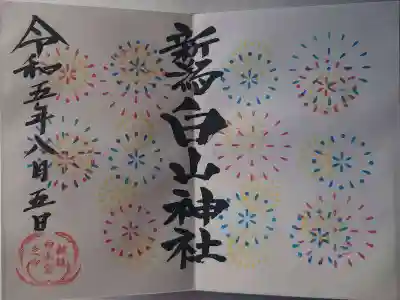 新潟白山神社
令和五年八月五日